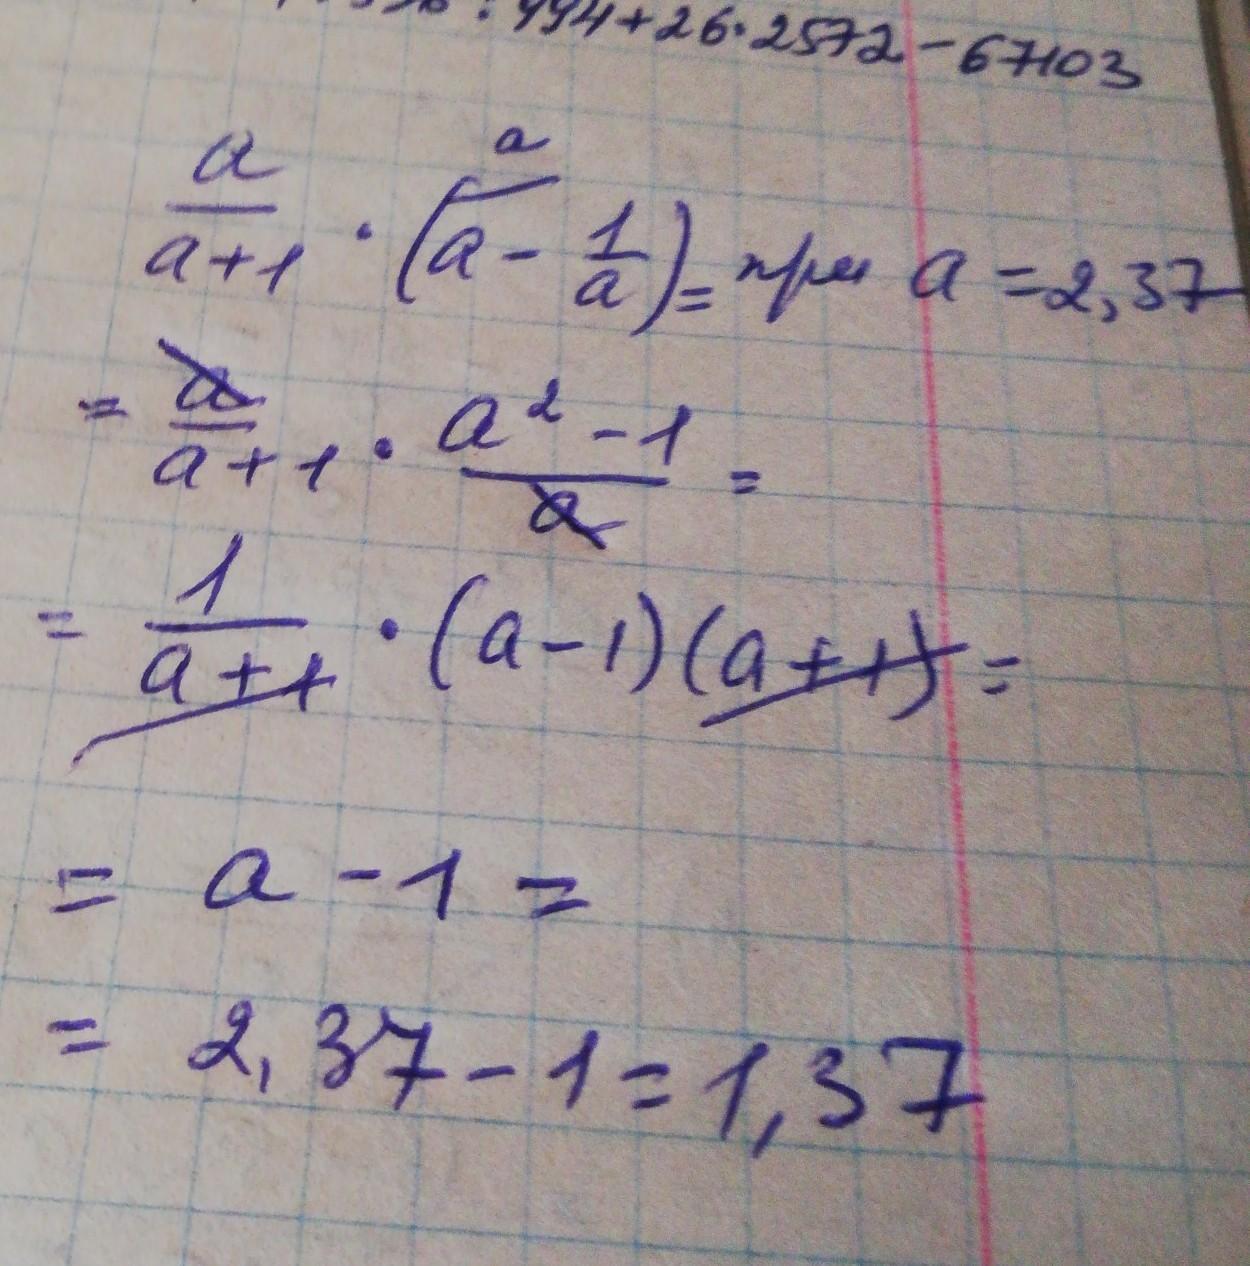 : 494 + 26 · 2572 - 67103
a/(a+1) · (a - 1/a) = при a = 2,37
a
= a/(a+1) · (a² - 1)/a =
= 1/(a+1) · (a-1)(a+1) =
= a - 1 =
= 2,37 - 1 = 1,37